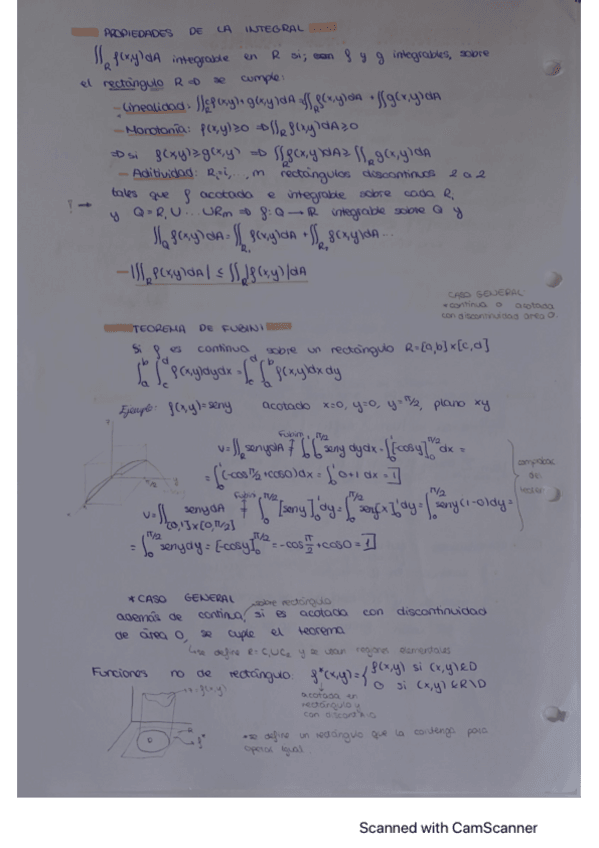 PROPIEDADES DE LA INTEGRAL
∬_R f(x,y)dA integrable en R si; son f y g integrables, sobre
el rectángulo R ⇒ se cumple:
- Linealidad: ∬cf(x,y)+g(x,y)dA = ∬_R f(x,y)dA + ∬g(x,y)dA
- Monotonía: f(x,y)≥0 ⇒ ∬_R f(x,y)dA≥0
⇒ si f(x,y)≥g(x,y) ⇒ ∬f(x,y)dA≥∬_R g(x,y)dA
- Aditividad: Ri=i,..., m rectángulos discontinuos 2 a 2
tales que f acotada e integrable sobre cada Ri
y Q=R, U ... URm ⇒ f: Q → R integrable sobre Q y
∬_Q f(x,y)dA = ∬_R f(x,y)dA + ∬_R f(x,y)dA...
- |∬_R f(x,y)dA| ≤ ∬_R |f(x,y)|dA
CASO GENERAL
*continua o acotada
con discontinuidad área 0.
TEOREMA DE FUBINI
Si f es continua sobre un rectángulo R=[a,b]x[c,d]
∫_a^b ∫_c^d f(x,y)dydx = ∫_c^d ∫_a^b f(x,y)dx dy
Ejemplo: f(x,y)=seny acotado x=0, y=0, y=π/2, plano xy
Fubini
v=∬_R senydA = ∫_0^1 ∫_0^π/2 seny dydx = ∫_0^1 [-cosy]_0^π/2 dx =
= ∫_0^1 (-cosπ/2+cos0)dx = ∫_0^1 0+1 dx = 1
Fubini
v=∬_[0,1]x[0,π/2] senydA = ∫_0^π/2 [seny]_0^1 dy = ∫_0^π/2 seny[x]_0^1 dy = ∫_0^π/2 seny(1-0)dy =
= ∫_0^π/2 senydy = [-cosy]_0^π/2 = -cos π/2 + cos0 = 1
*CASO GENERAL
sobre rectángulo
además de continua, si es acotada con discontinuidad
de área 0, se cuple el teorema
se define R=C1UC2 y se usan regiones elementales
Funciones no de rectángulo: f*(x,y)={f(x,y) si (x,y)∈D
0 si (x,y)∈R\D
acotada en
rectángulo y
*se define un rectángulo que la contenga para
operar igual
Scanned with CamScanner